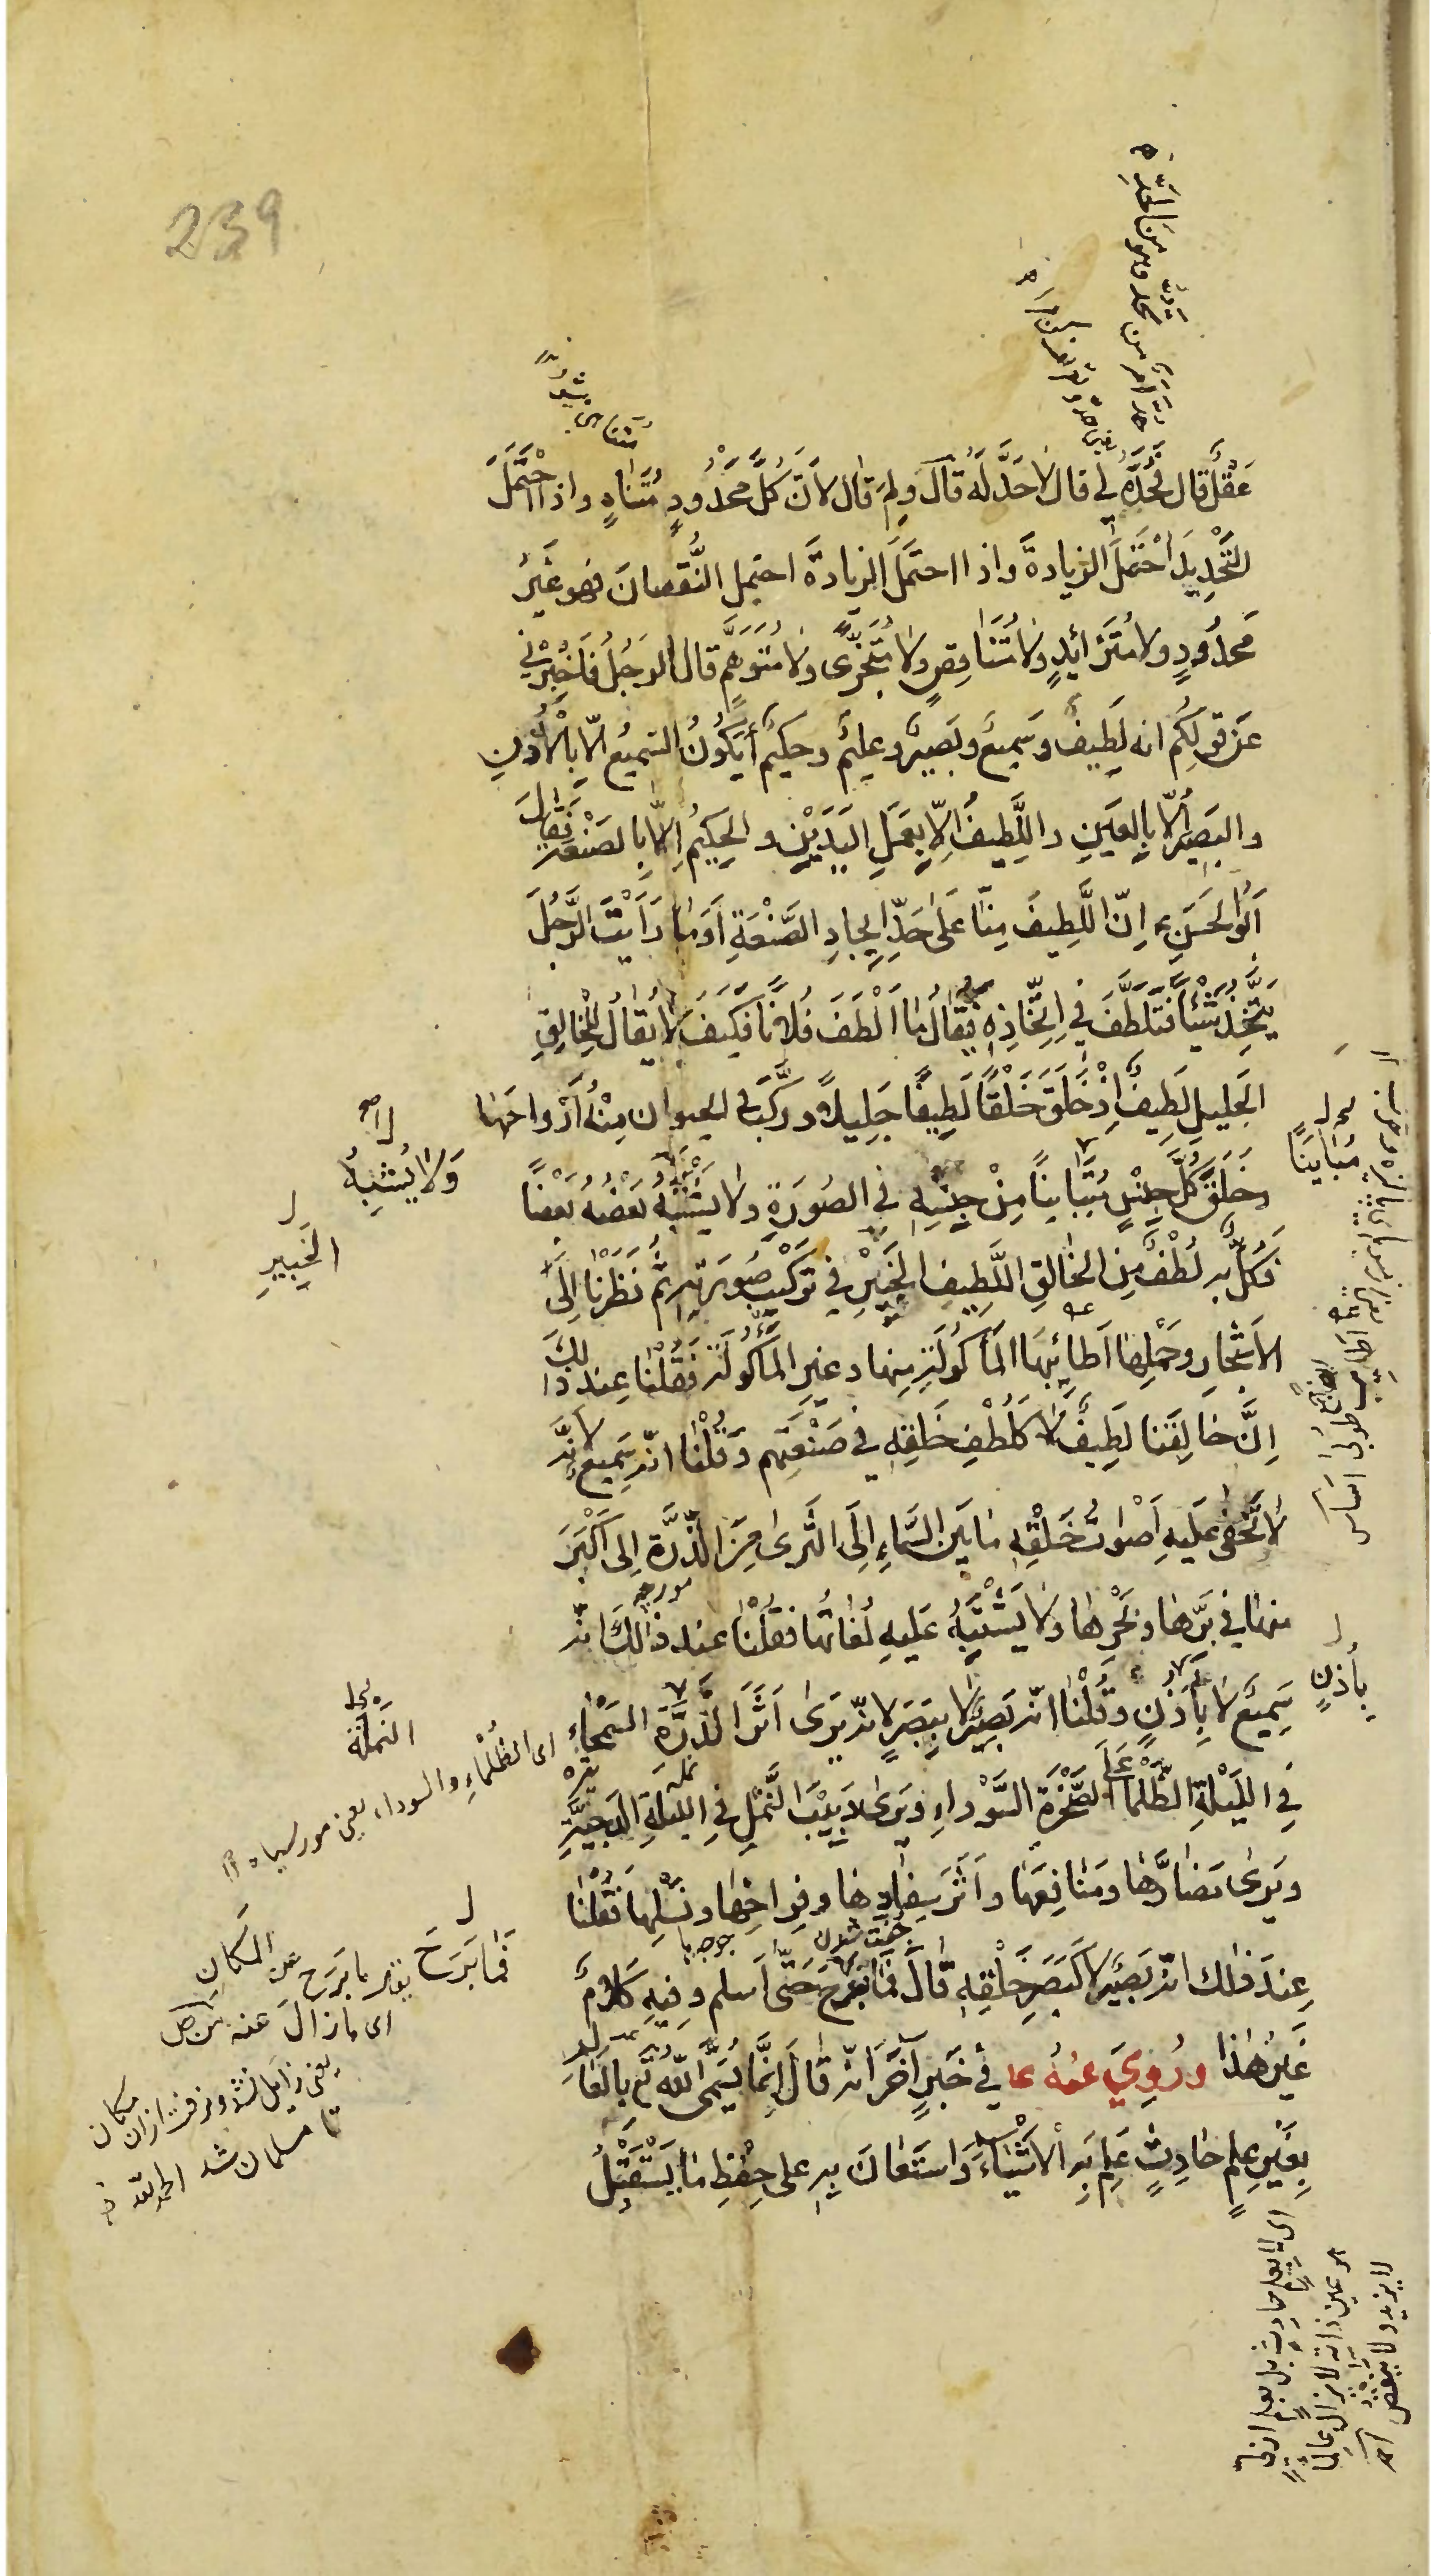 239
عَقْلٌ قال فَحُدَّهُ لي قال لا حَدَّ لَهُ قال ولِمَ قال لأنَّ كُلَّ مَحْدُودٍ مُتَناهٍ واذا احْتَمَلَ
التَّحْدِيدَ احْتَمَلَ الزيادةَ واذا احتَمَلَ الزيادةَ احتمل النُّقصانَ فهو غَيرُ
مَحدُودٍ ولا مُتَزائِدٍ ولا مُتَناقِصٍ ولا مُتَجَزّئ ولا مُتَوَهَّمٍ قال الرجُلُ فَاَخْبِرْني
عَن قَولِكُم انه لَطِيفٌ وسَمِيعٌ وبَصِيرٌ وعليمٌ وحكيمٌ أيَكُونُ السميعُ الّا بالأُذُنِ
والبَصِيرُ الّا بالعَينِ واللَّطِيفُ الّا بِعَمَلِ اليَدَيْنِ والحَكِيمُ اِلّا بِالصَنْعَةِ فَقالَ
اَبُو الحَسَنِ ع اِنّ اللَّطِيفَ مِنّا عَلى حَدِّ اِيجادِ الصَّنْعَةِ اَوَ ما رَأَيْتَ الرَّجُلَ
يَتَّخِذُ شَيْئًا فَتَلَطَّفَ في اِتِّخاذِهِ فَيُقالُ ما اَلْطَفَ فُلانًا فَكَيفَ لا يُقالُ لِلْخالِقِ
الجَليلِ لَطِيفٌ اِذْ خَلَقَ خَلْقًا لَطِيفًا جَلِيلاً ورَكَّبَ في الحيوان مِنْهُ اَرْواحَها
وخَلَقَ كُلَّ جِنْسٍ مُتَبايِنًا مِنْ جِنْسِهِ في الصُورَةِ ولا يَشْتَبِهُ بَعْضُهُ بَعْضًا
فَكُلٌّ بِهِ لُطْفٌ مِنَ الخالِقِ اللَّطِيفِ الخَبِيرِ في تَرْكِيبِ صُورَتِهِ ثُمَّ نَظَرْنا اِلَى
الاَشْجارِ وحَمْلِها اَطائِبَها المأكُولَةِ منها وغيرِ المَأكُولَةِ فَقُلْنا عند ذلِكَ
اِنَّ خالِقَنا لَطِيفٌ لا كَلُطْفِ خَلقِهِ في صَنْعَتِهم وقُلْنا انّه سَمِيعٌ لأنّه
لا يَخْفى عَلَيهِ اَصْواتُ خَلْقِهِ ما بَينَ السَّماءِ اِلَى الثَّرى مِنَ الذَّرَّةِ اِلى اَكْبَرَ
منها في بَرِّها وبَحْرِها ولا يَشْتَبِهُ عَلَيهِ لُغاتُها فقُلْنا عند ذلكَ انّه
سَمِيعٌ لا بِاُذُنٍ وقُلْنا انّه بَصِيرٌ لا بِبَصَرٍ لانّه يَرى اَثَرَ الذَّرَّةِ السَحْماءِ
فِي اللَيْلَةِ الظَّلْماءِ عَلَى الصَّخْرَةِ السَّوْداءِ ويَرى دَبِيبَ النَّمْلِ فِي اللَيلَةِ الدَجِيَّةِ
ويَرى مَضارَّها ومَنافِعَها واَثَرَ سِفادِها وفِراخِها ونَسْلِها فَقُلْنا
عِندَ ذلك انّه بَصِيرٌ لا كَبَصَرِ خَلْقِهِ قالَ فَما بَرِحَ حَتّى اَسلم وفيهِ كَلامٌ
غَيرُ هذا ورُوِيَ عَنْهُ ع في خَبَرٍ آخَرَ انّه قالَ اِنَّما يُسَمَّى اللّهُ تَع بالعالِمِ
بِغَيرِ عِلمٍ حادِثٍ عَلِمَ بِهِ الاَشْياءَ واسْتَعانَ بِهِ على حِفْظِ ما يَسْتَقْبِلُ
مُبايِنًا
وَلا يُشْبِهُ
الخَبِيرِ
بأُذنٍ
النَمْلَة
اى الظُلْماءِ والسوداء يعنى مور سياه
فَما بَرَحَ يقال ما بَرَح عن المكان
اى ما زالَ عنه
يعنى زايل نشد ونرفت ازان مكان
تا مسلمان شد الحمد للّه
مورچه
جفت شدن
اى لا بعلم حادث بل بعلم ازلىّ
هو عين ذاته لا يزال عالمًا
لا يزيد ولا ينقص